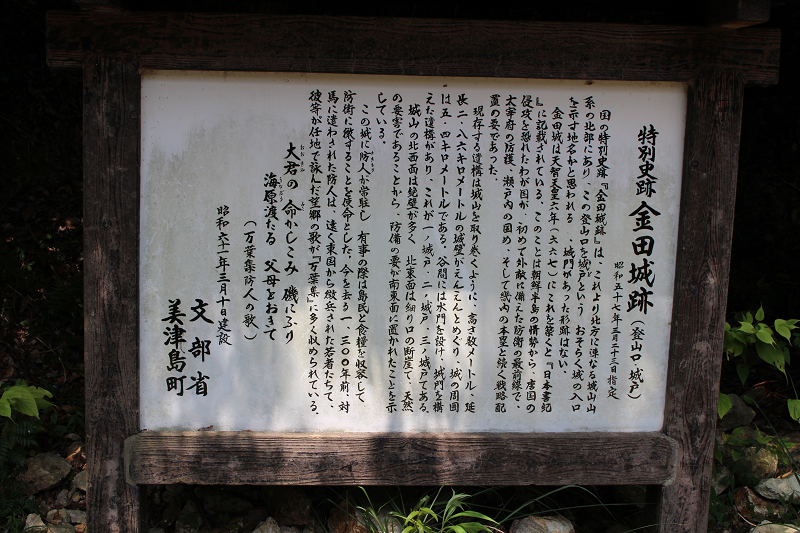 特別史跡 金田城跡（登山口 城戸）
昭和五十七年三月二十三日指定
国の特別史跡『金田城跡』は、これより北方に連なる城山山
系の北部にあり、この登山口を城戸という。おそらく城の入口
を示す地名かと思われる。城門があった形跡はない。
金田城は天智天皇六年（六六七）にこれを築くと『日本書紀
』に記載されている。このことは朝鮮半島の情勢から、唐国の
侵攻を恐れたわが国が、初めて外敵に備えた防衛の最前線で、
太宰府の防護、瀬戸内の固め、そして畿内の本塁と続く戦略配
置の要であった。
現存する遺構は城山を取り巻くように、高さ数メートル、延
長二・八六キロメートルの城壁がえんえんとめぐり、城の周囲
は五・四キロメートルである。谷間には水門を設け、城門を構
えた遺構があり、これが一ノ城戸、二ノ城戸、三ノ城戸である。
城山の北西面は絶壁が多く、北東面は細り口の断崖で、天然
の要害であることから、防備の要が南東面に置かれたことを示
している。
この城に防人が常駐し、有事の際は島民と食糧を収容して
防衛に徹することを使命とした。今を去る一、三〇〇年前、対
馬に遣わされた防人は、遠く東国から徴兵された若者たちで、
彼等が任地で詠んだ望郷の歌が『万葉集』に多く収められている。
大君の 命かしこみ 磯にふり
海原渡たる 父母をおきて
（万葉集防人の歌）
昭和六十一年三月十日建設
文部省
美津島町